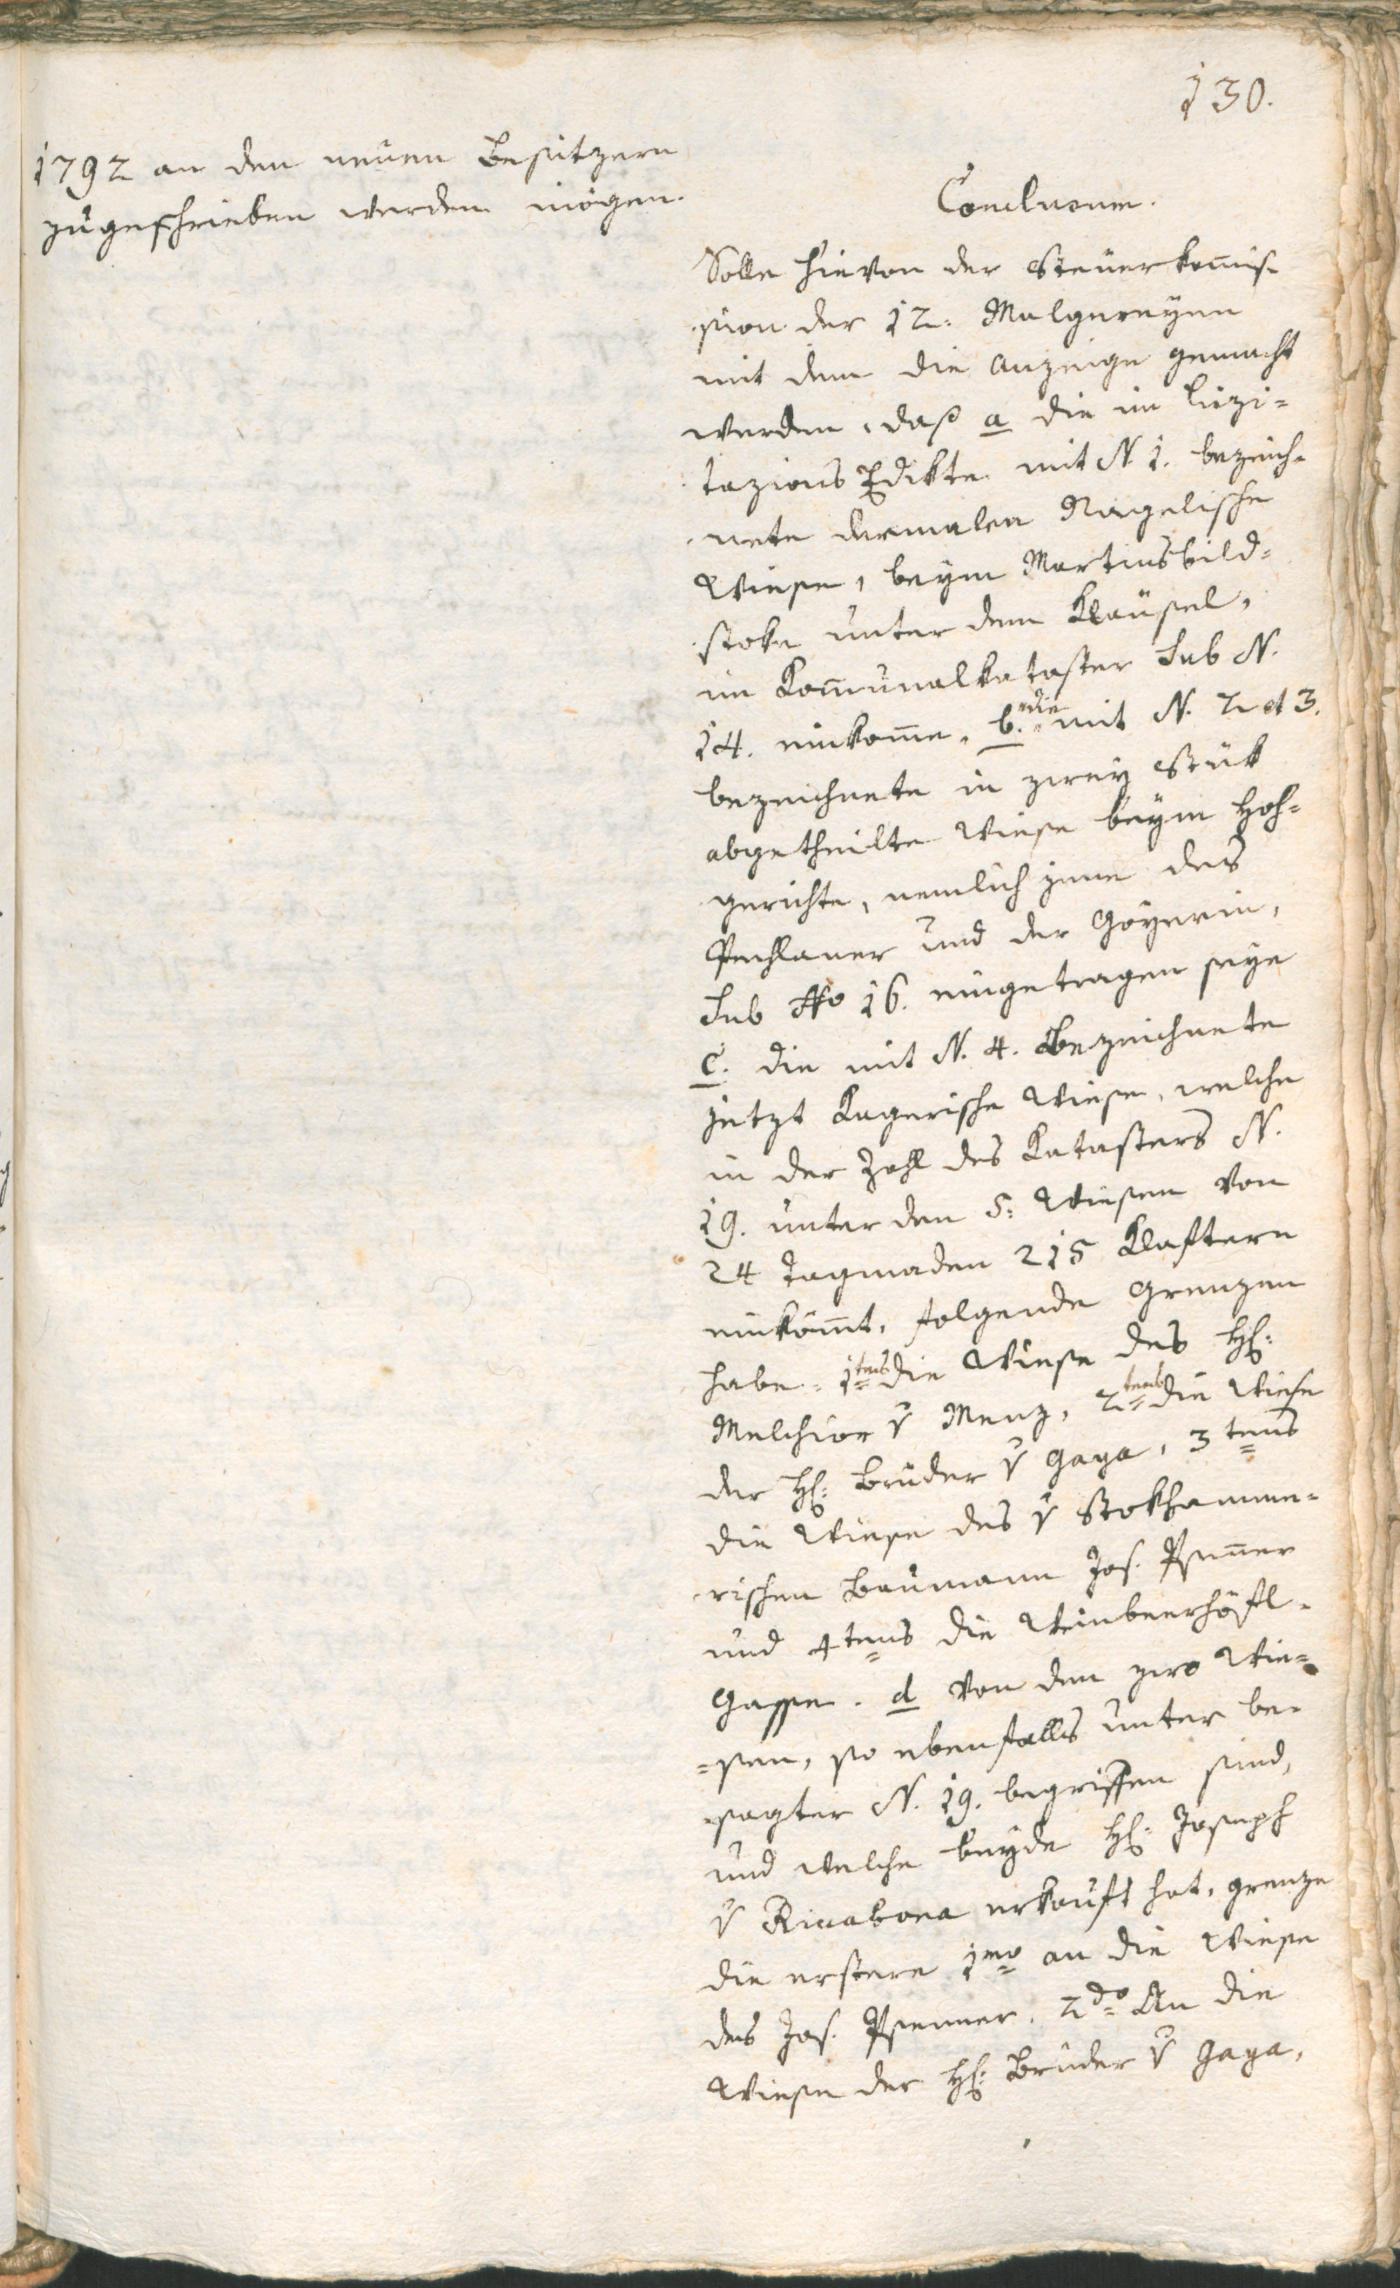 130.
1792 an den neuen Besitzern
zugeschrieben werden mögen.
Conclusum.
Solle hievon der Steuerkom̄is-
sion der 12. Malgereyen
mit dem die Anzeige gemacht
werden, daß a die im Lizi=
tazions Edikte mit N. 1. bezeich-
nete dermalen Nagelische
Wiese, beym Martinsbild=
stoke unter dem Kläusel,
im Kom̄unalkataster Sub N.
14. einkom̄e, b. die mit N. 2 et 3.
bezeichnete in zwey Stük
abgetheilte Wiese beym Hoh=
gerichte, nemlich jene des
Pechlaner und der Goyerin,
Sub No 16. eingetragen seye
C. die mit N. 4. Bezeichnete
jetzt Kagerische Wiese, welche
in der Zahl des Katasters N.
19. unter den 5. Wiesen von
24 Tagmaden 215 Klaftern
einköm̄t, folgende Grenzen
habe. 1tens die Wiese des H:
Melchior v Menz, 2tens die Wiese
der H: Brüder v Gaya, 3tens
die Wiese des v Stokhamme-
rischen Baumann Jos. Psen̄er
und 4tens die Weinbeerhöfl-
Gasse. d von den zwo Wie=
=sen, so ebenfalls unter be-
sagter N. 19. begriffen sind,
und welche beyde H: Joseph
v Riccabona erkauft hat, grenze
die erstere 1mo an die Wiese
des Jos. Psenner. 2do An die
Wiese der H: Brüder v Gaya,